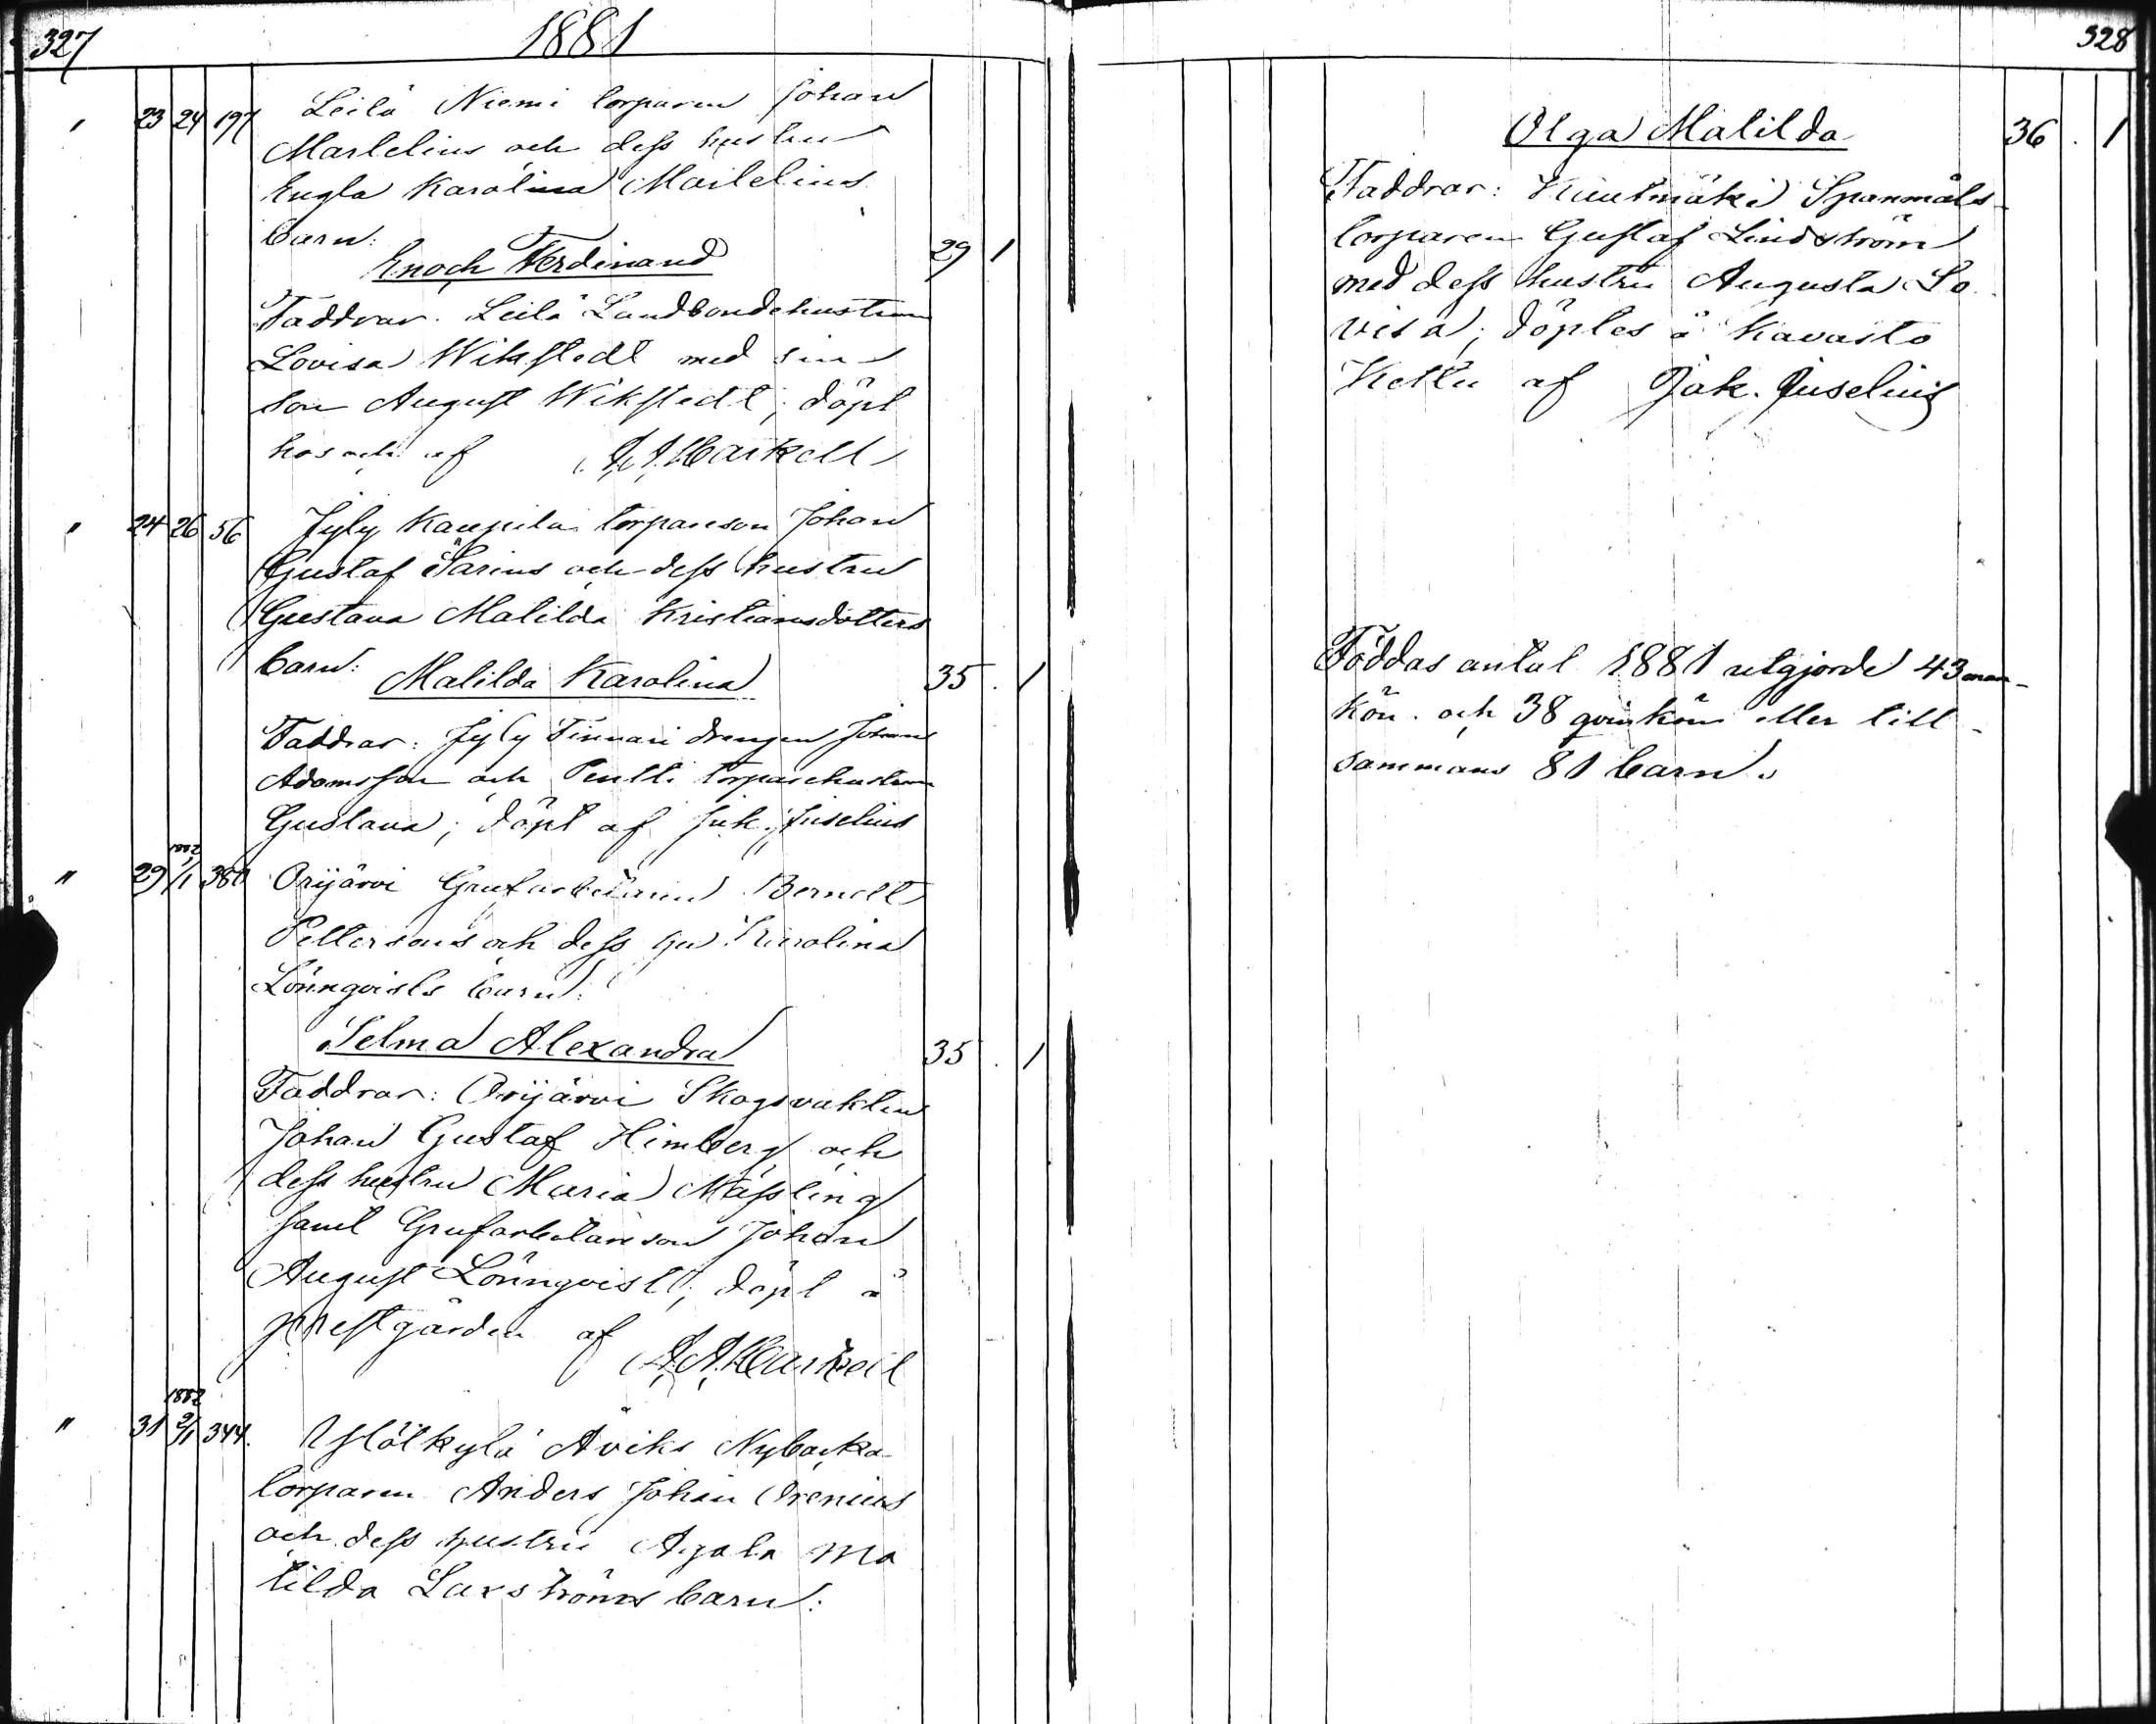 327 1881
" 23 24 197 Leilä Niemi torparen Johan
Martelius och dess hustru
Engla Karolina Martelius
barn:
Enoch Ferdinand 29 1
Faddrar. Leilä Landbondehustrun
Lovisa Wikstedt med sin
son August Wikstedt; döpt
hos och af
" 24 26 56 Jyly Kaupila torpareson Johan
Gustaf Sarins och dess hustru
Gustava Matilda Kristiansdotters
barn:
Matilda Karolina 35 . 1
Faddrar: Jyly Tinnari drengen Johan
Adamsson och Pentti torparehustrun
Gustava; döpt af Jak. Juselius
1882
" 29 1/1 380 Orijärvi Grufarbetaren Berndt
Pettersons och dess hu Karolina
Lönnqvists barn:
Selma Alexandra 35 . 1
Faddrar: Orijärvi Skogsvakten
Johan Gustaf Himberg och
dess hustru Maria Mässling
samt Grufarbetareson Johan
August Lönnqvist; döpt å
prestgården af
1882
" 31 2/1 344. Ylölkylä Åviks Nybacka
torparen Anders Johan Grenius
och dess hustru Agata Ma
tilda Laxströms barn:
328
Olga Matilda 36 . 1
Faddrar: Kuutmäki Spanmåls-
torparen Gustaf Lindström
med dess hustru Augusta Lo
visa; döptes å Kavasto
Kettu af Jak. Juselius
Föddas antal 1881 utgjorde 43 man-
kön. och 38 qvinkön eller till-
sammans 81 barn.